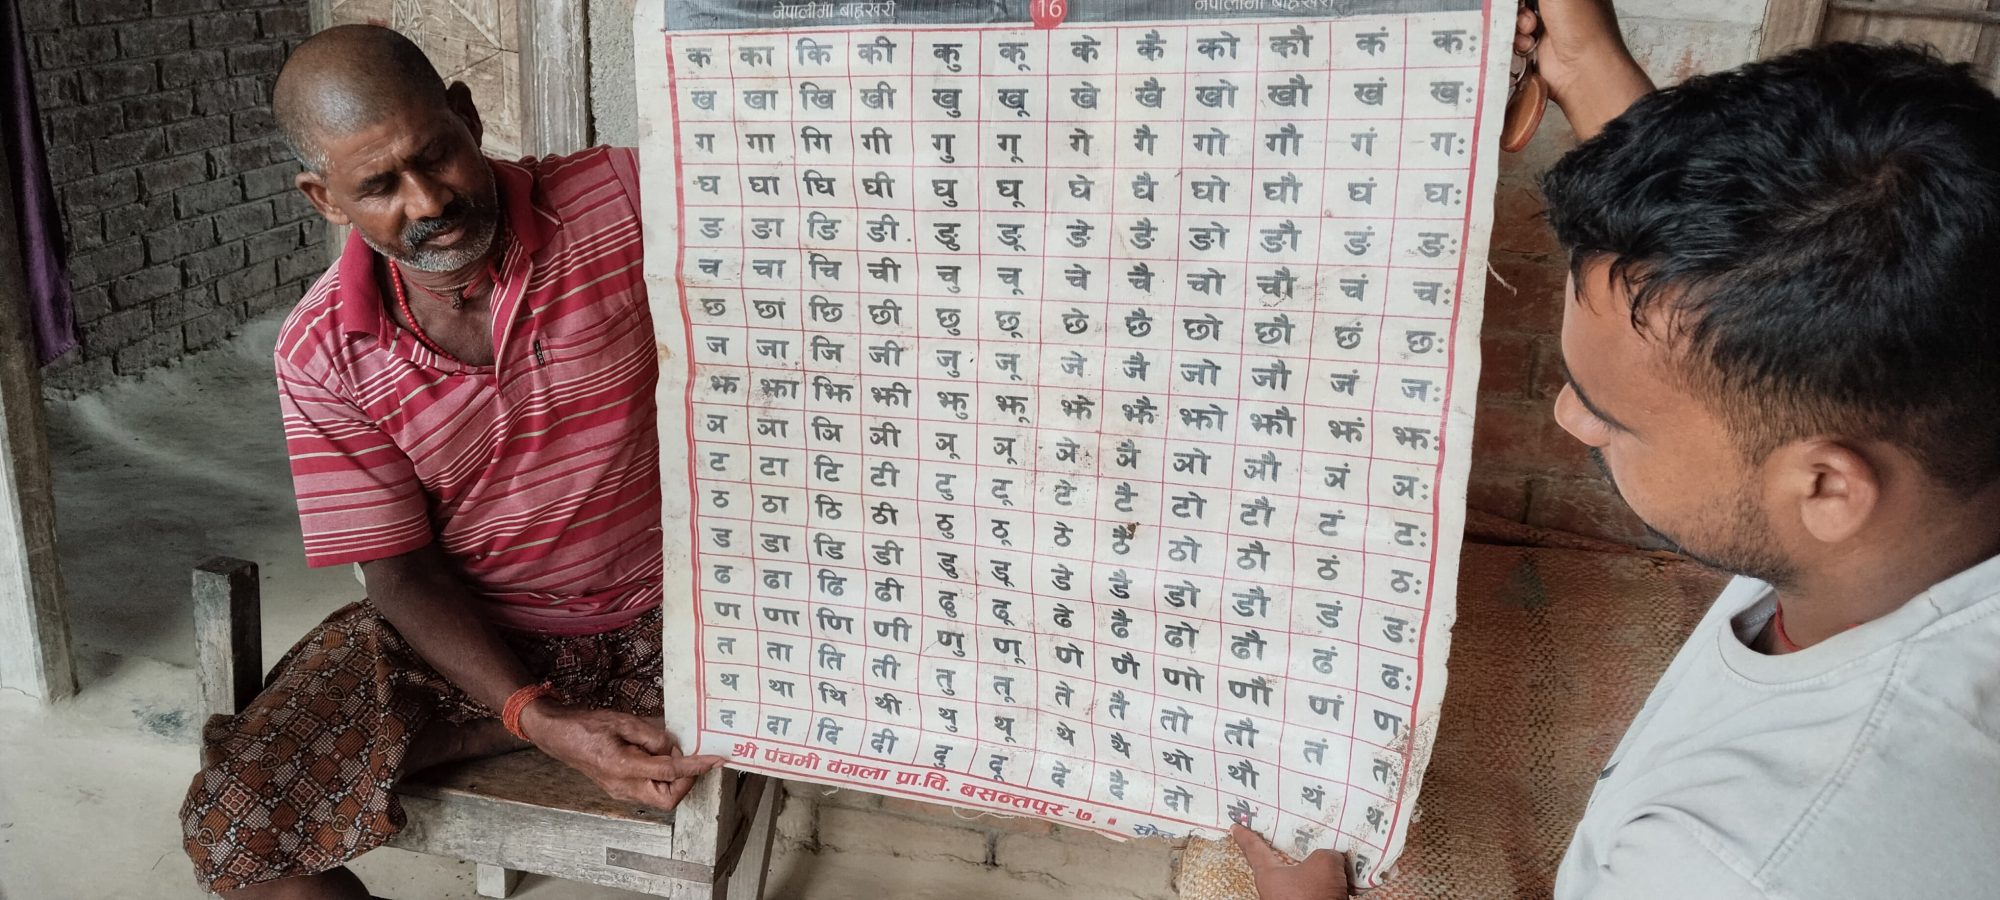 नेपालीमा बाह्रखरी 16 नेपालीमा बाह्रखरी
क का कि की कु कू के कै को कौ कं कः
ख खा खि खी खु खू खे खै खो खौ खं खः
ग गा गि गी गु गू गे गै गो गौ गं गः
घ घा घि घी घु घू घे घै घो घौ घं घः
ङ ङा ङि ङी ङु ङू ङे ङै ङो ङौ ङं ङः
च चा चि ची चु चू चे चै चो चौ चं चः
छ छा छि छी छु छू छे छै छो छौ छं छः
ज जा जि जी जु जू जे जै जो जौ जं जः
झ झा झि झी झु झू झे झै झो झौ झं झः
ञ ञा ञि ञी ञू ञू ञे ञै ञो ञौ ञं ञः
ट टा टि टी टु टू टे टै टो टौ टं टः
ठ ठा ठि ठी ठु ठू ठे ठै ठो ठौ ठं ठः
ड डा डि डी डु डू डे डै डो डौ डं डः
ढ ढा ढि ढी ढु ढू ढे ढै ढो ढौ ढं ढः
ण णा णि णी णु णू णे णै णो णौ णं ण
त ता ति ती तु तू ते तै तो तौ तं त
थ था थि थी थु थू थे थै थो थौ थं थः
द दा दि दी दु दू दे दै दो दौ दं दः
श्री पंचमी वंगला प्रा.वि. बसन्तपुर-७.